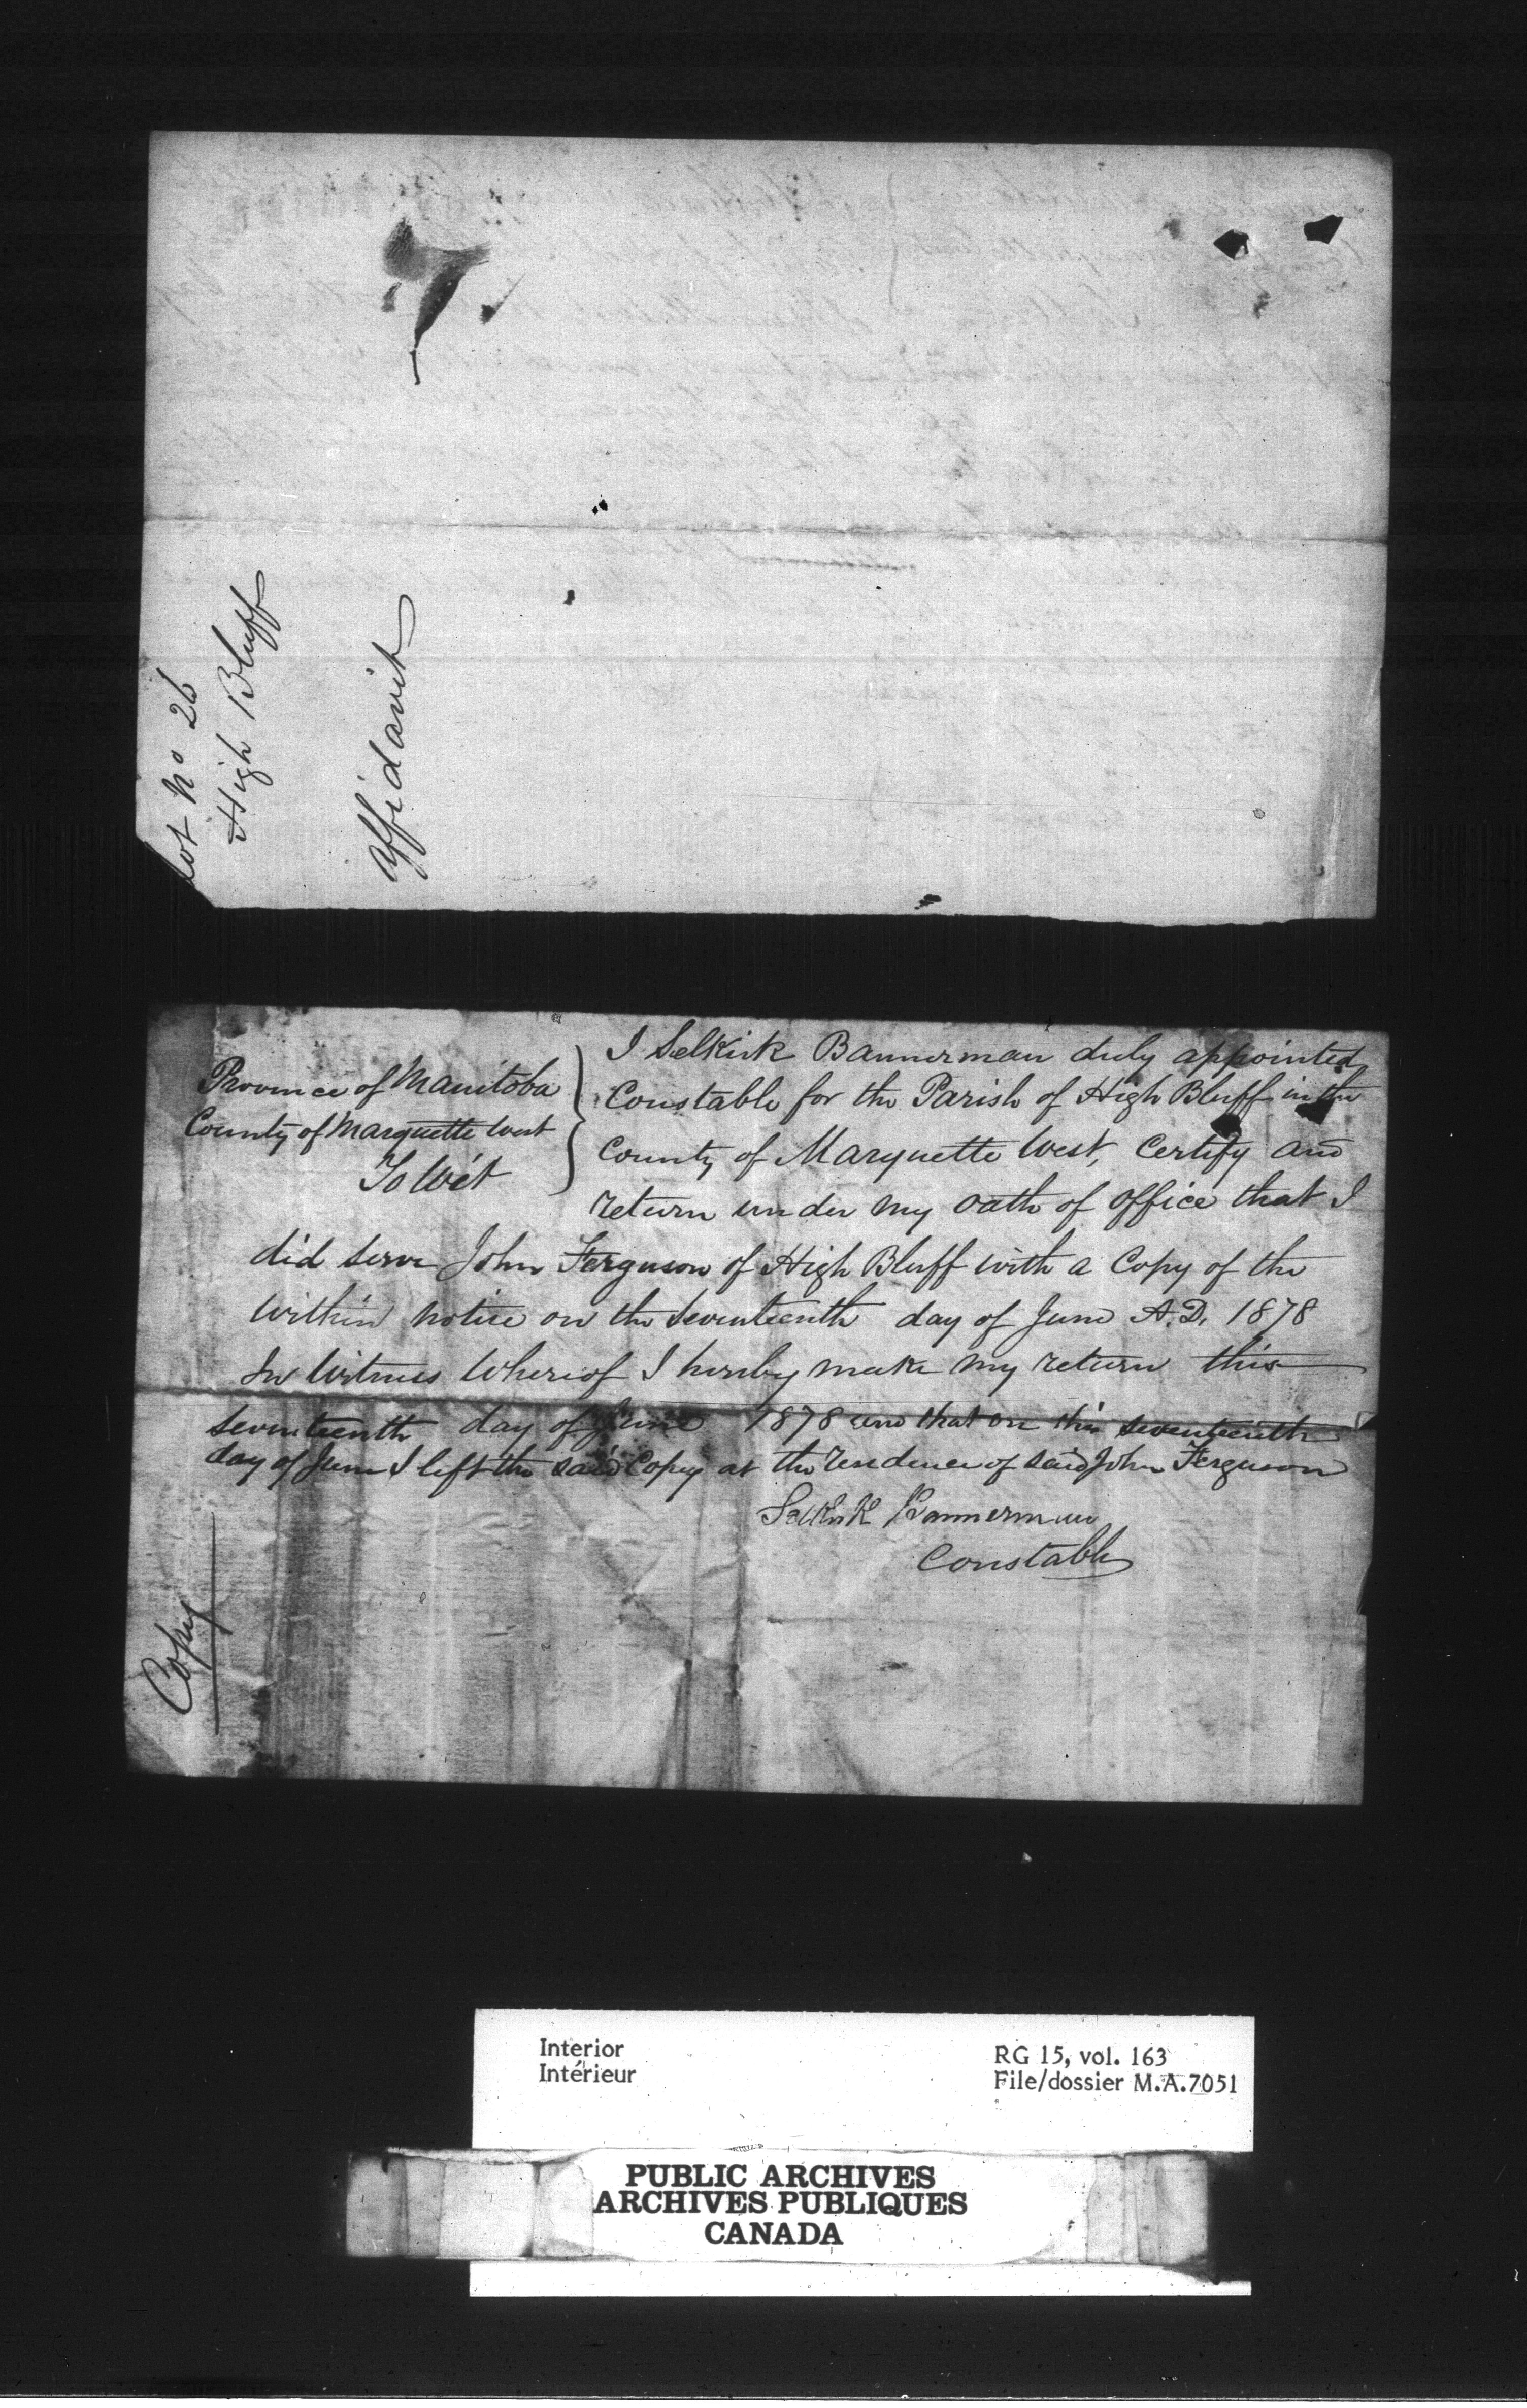 Lot No 26
High Bluff
Affidavit
Province of Manitoba
County of Marquette West
To Wit
I Selkirk Bannerman duly appointed
Constable for the Parish of High Bluff in the
County of Marquette West, Certify and
return under my oath of office that I
did serve John Ferguson of High Bluff with a Copy of the
within notice on the seventeenth day of June A.D. 1878
In Witness Whereof I hereby make my return this
seventeenth day of June 1878 and that on this seventeenth
day of June I left the said Copy at the residence of said John Ferguson
Selkirk Bannerman
Constable
Copy
Interior
Intérieur
RG 15, vol. 163
File/dossier M.A.7051
PUBLIC ARCHIVES
ARCHIVES PUBLIQUES
CANADA